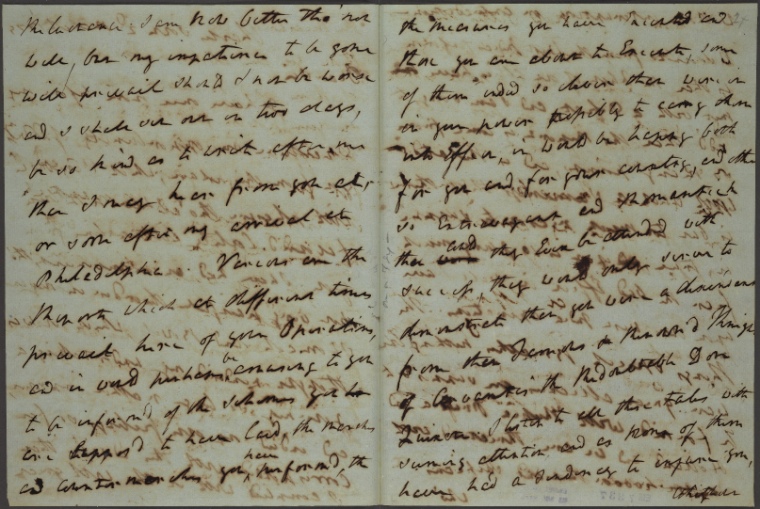 Reluctance. I am now better tho' not
well, but my impatience to be gone
will prevail should I not be worse
and I shall set out in two days,
be so kind as to write after me
that I may hear from you at,
or soon after my arrival at
Philadelphia. Various are the
Reports which at different times
prevail here of your Operations,
and it would perhaps be amusing to you
to be informed of the schemes you
are supposed to have laid, the marches
and countermarches you have performed, the
the measures you have executed and
those you are about to Execute, some
of them indeed so clever that were it
in your power possibly to carry them
into Effect, it would be happy both
for you and for your country, and others
so Extravagant and Romantick
that and they Even be attended with
success, they would only serve to
demonstrate that you were a descendant
from that famous & Renown'd Thing
of Cervantes the Redoubtable Don
Quixote. I listen to all these tales with
seeming attention and as none of them
have had a tendency to injure you,